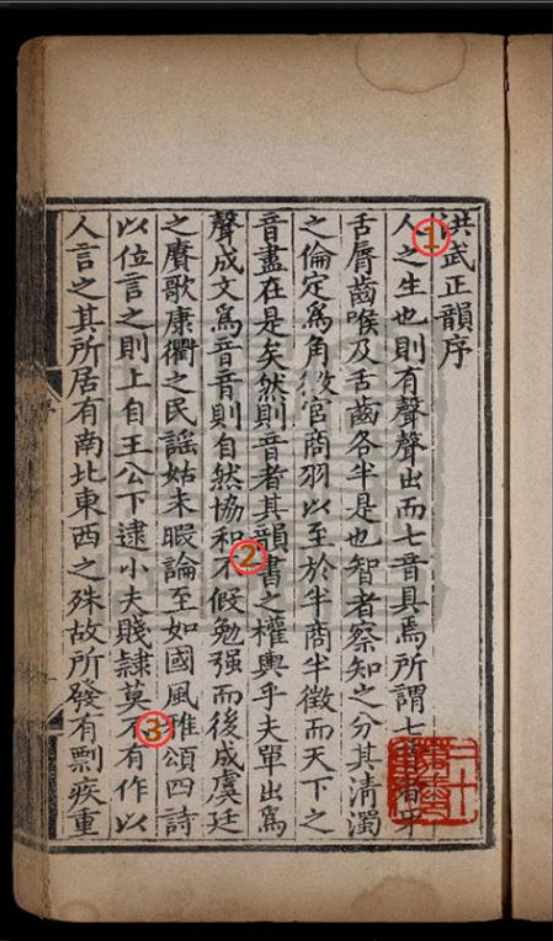 洪武正韻序
人之生也則有聲聲出而七音具焉所謂七音者牙
舌脣齒喉及舌齒各半是也智者察知之分其清濁
之倫定爲角徵宮商羽以至於半商半徵而天下之
音盡在是矣然則音者其韻書之權輿乎夫單出爲
聲成文爲音音則自然協和不假勉强而後成虞廷
之賡歌康衢之民謠姑未暇論至如國風雅頌四詩
以位言之則上自王公下逮小夫賤隸莫不有作以
人言之其所居有南北東西之殊故所發有剽疾重
1
2
3